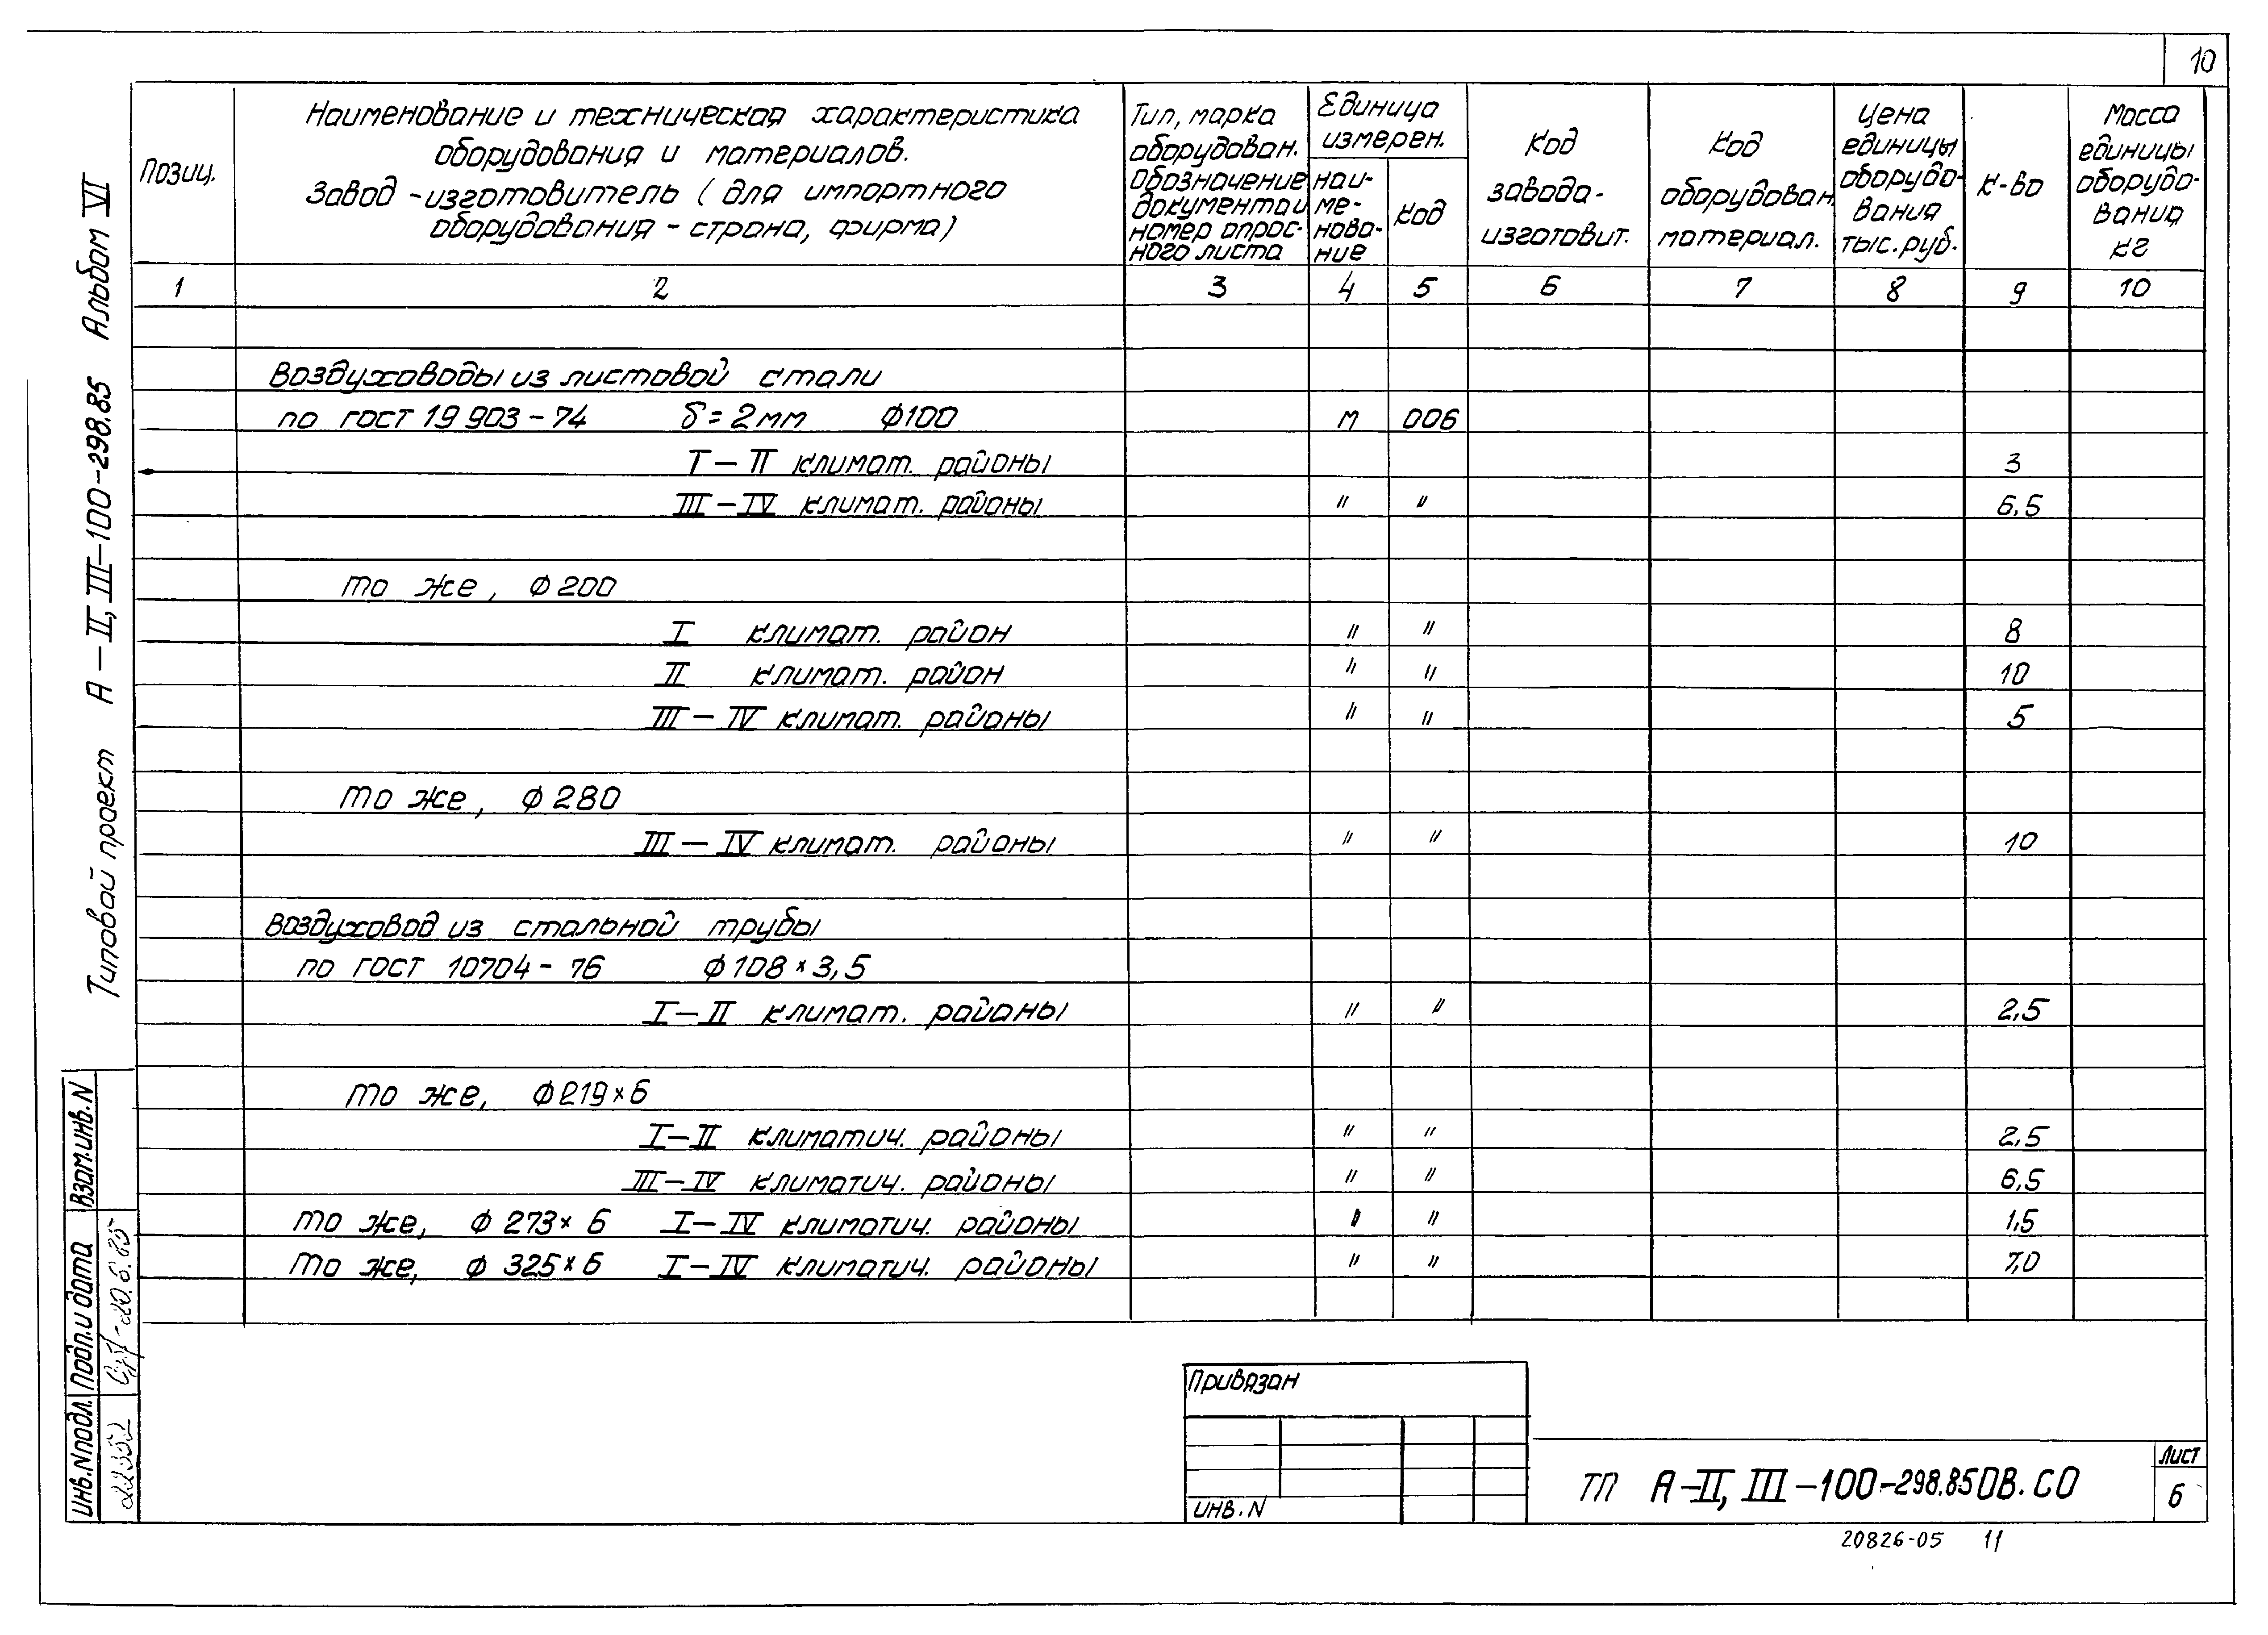 10
Позиц.
Наименование и техническая характеристика
оборудования и материалов.
Завод-изготовитель (для импортного
оборудования - страна, фирма)
Тип, марка
оборудован.
Обозначение
документа и
номер опрос-
ного листа
Единица
измерен.
наи-
ме-
нова-
ние
Код
Код
завода-
изготовит.
Код
оборудован.
материал.
Цена
единицы
оборудо-
вания
тыс. руб.
К-во
Масса
единицы
оборудо-
вания
кг
1 2 3 4 5 6 7 8 9 10
Воздуховоды из листовой стали
по ГОСТ 19903-74 δ=2мм Ф100 м 006
I-II климат. районы 3
III-IV климат. районы " " 6,5
то же, Ф200
I климат. район " " 8
II климат. район " " 10
III-IV климат. районы " " 5
то же, Ф280
III-IV климат. районы " " 10
Воздуховод из стальной трубы
по ГОСТ 10704-76 Ф108×3,5
I-II климат. районы " " 2,5
то же, Ф219×6
I-II климатич. районы " " 2,5
III-IV климатич. районы " " 6,5
то же, Ф273×6 I-IV климатич. районы " " 1,5
то же, Ф325×6 I-IV климатич. районы " " 7,0
Типовой проект А-II, III-100-298.85 Альбом VI
Взам. инв. N
Подп. и дата
Инв. N подл.
Привязан
Инв. N
ТП А-II, III-100-298.85 ОВ.СО
Лист
6
20826-05 11